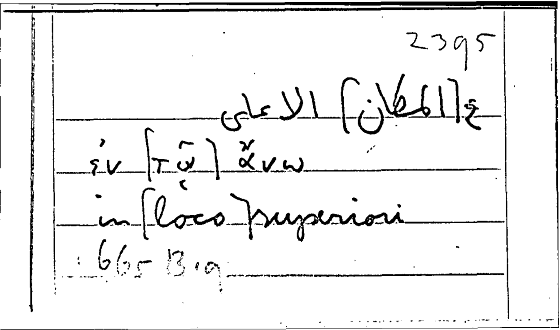 2395
ع [المكان] الاعلى
ἐν [τῷ] ἄνω
in [loco] superiori
665 B 19